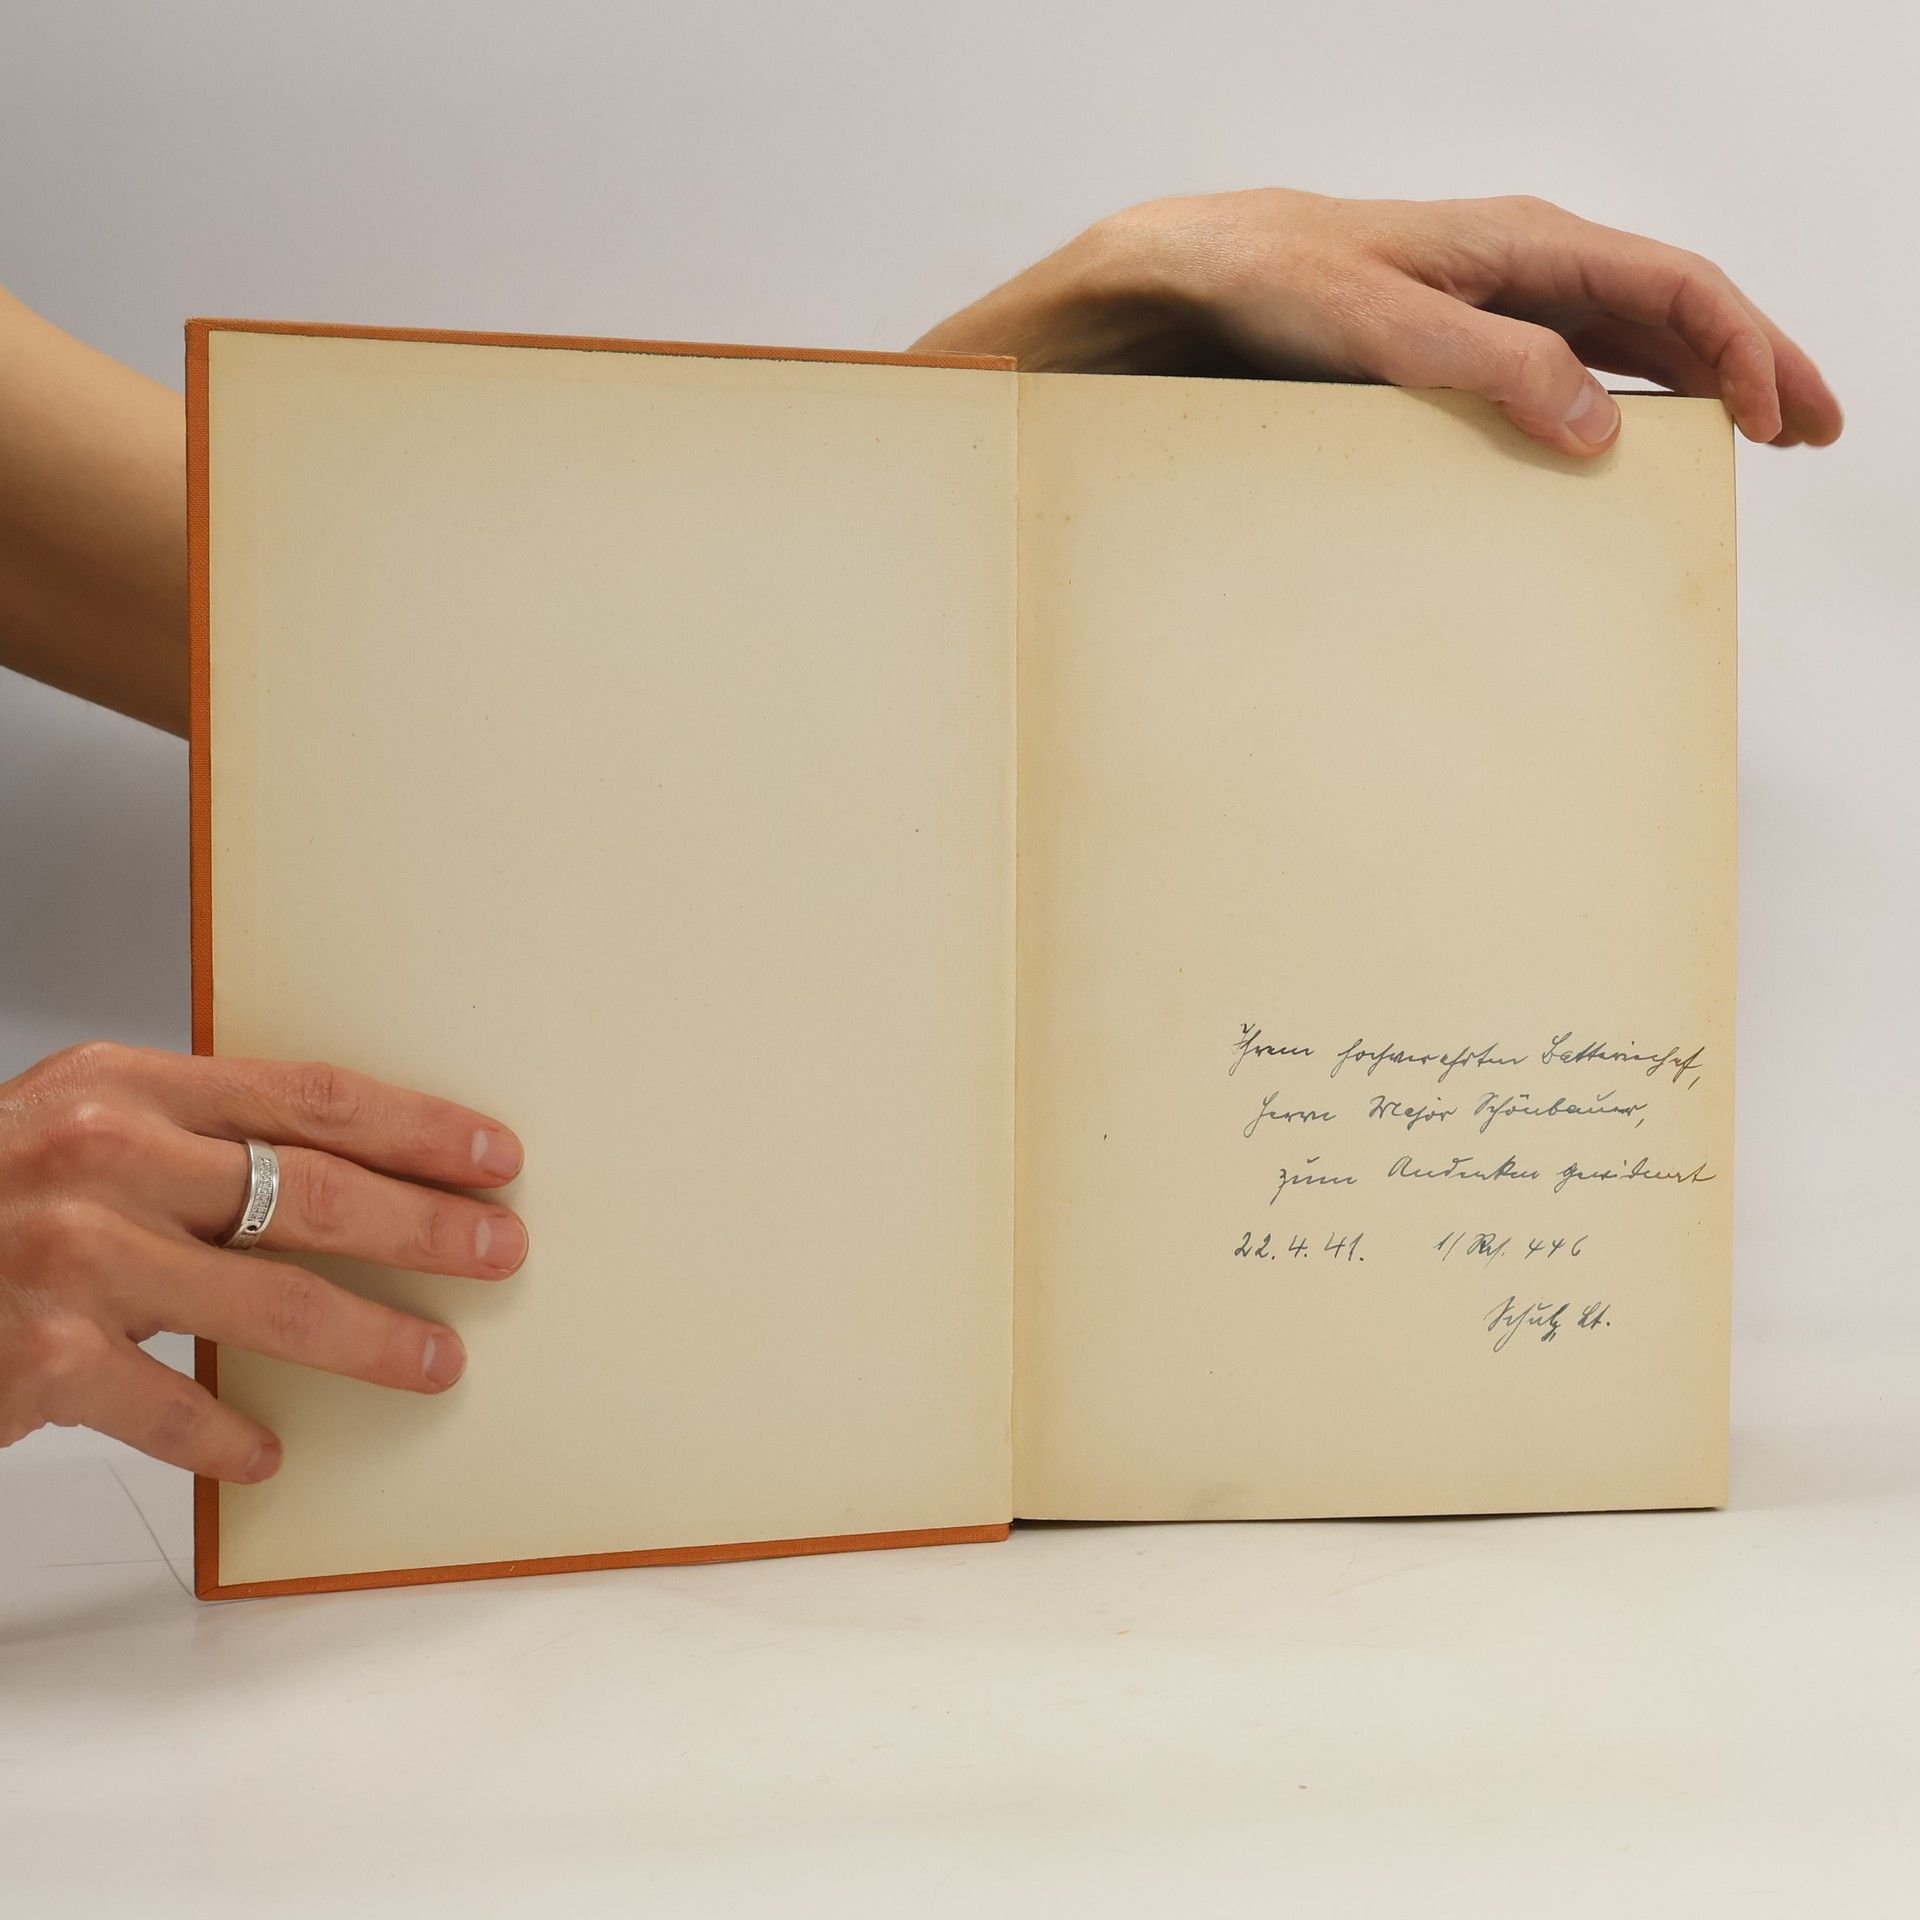 Ihrem hochverehrten Batteriechef,
Herrn Major Schönbauer,
zum Andenken gewidmet
22.4.41. 1/ 446
Schulz Lt.